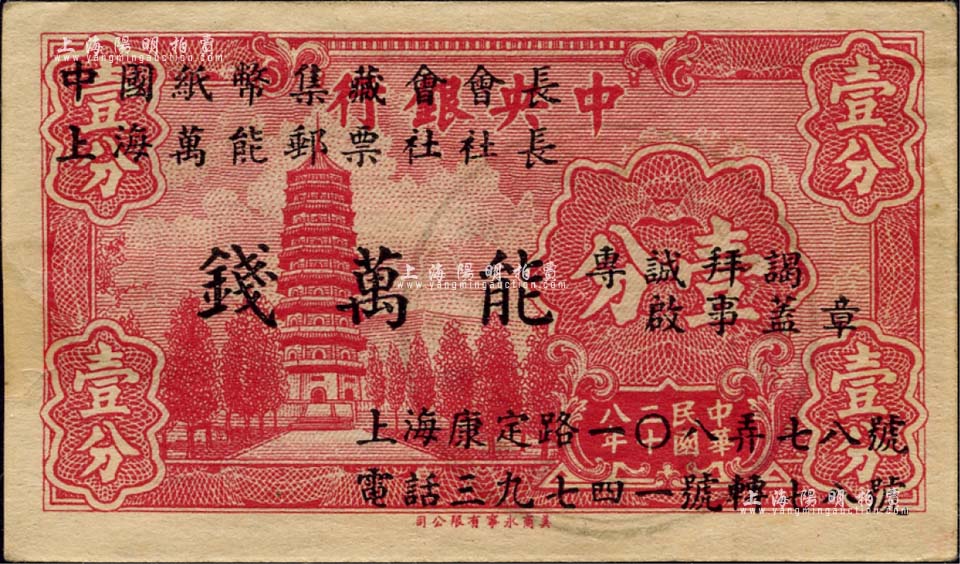 上海陽明拍賣
www.yangmingauction.com
中國紙幣集藏會會長
上海萬能郵票社社長
行銀央中
壹分
壹分
錢萬能
專誠拜謁
啟事蓋章
壹分
上海陽明拍賣
www.yangmingauction.com
中華民國二十八年
壹分
壹分
上海康定路一〇八弄七八號
電話三九七四一號轉十八號
上海陽明拍賣
www.yangmingauction.com
司公限有書永商美